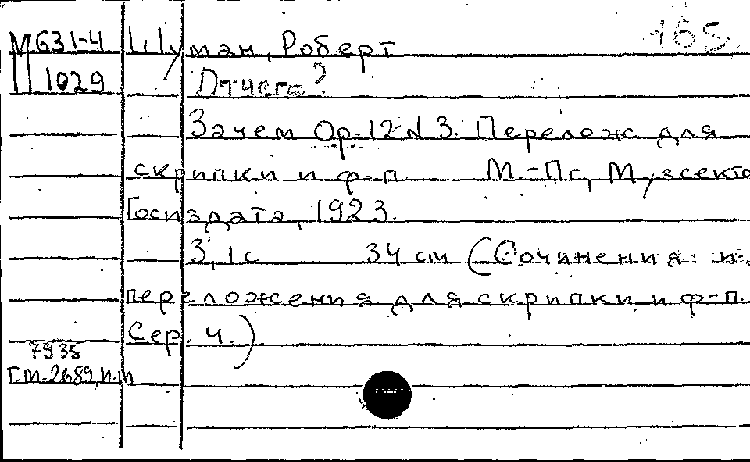 М631-4 Шуман, Роберт 165
П 1029 Отчего?
Зачем Ор. 12 N 3. Перелож для
скрипки и ф-п М.-Пг, Музсекто
Госиздата, 1923.
3, 1 с 34 см (Сочинения и
переложения для скрипки и ф-п.
Сер. 4.)
7935
Гм-2689, и.п